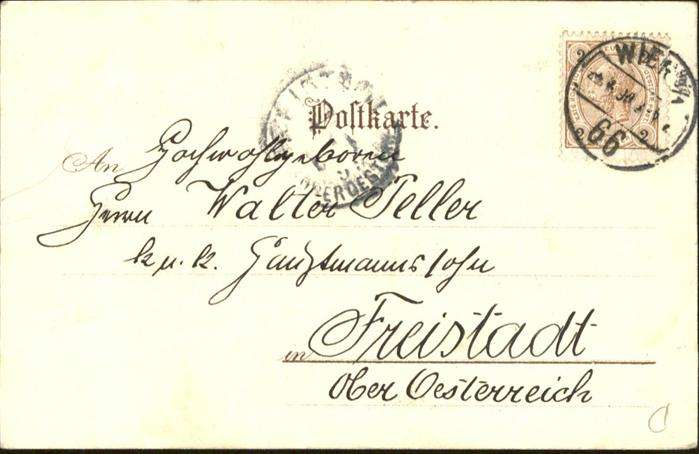 Postkarte.
WIEN
66
An Hochwohlgeboren
Herrn Walter Teller
k. u. k. Hauptmannssohn
in Freistadt
Ober Oesterreich